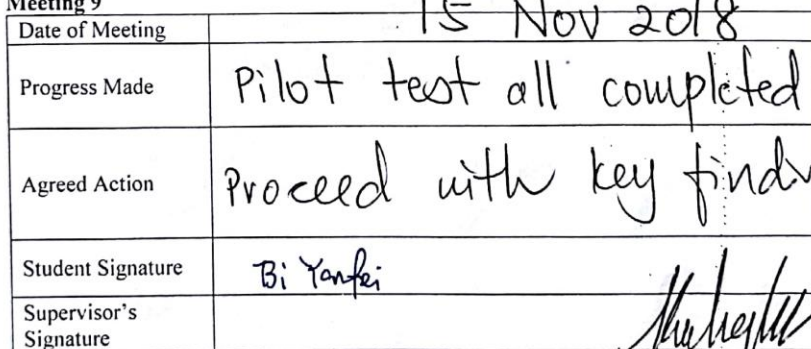 Meeting 9
Date of Meeting 15 Nov 2018
Progress Made Pilot test all completed
Agreed Action Proceed with key
Student Signature Bi Yanfei
Supervisor's
Signature